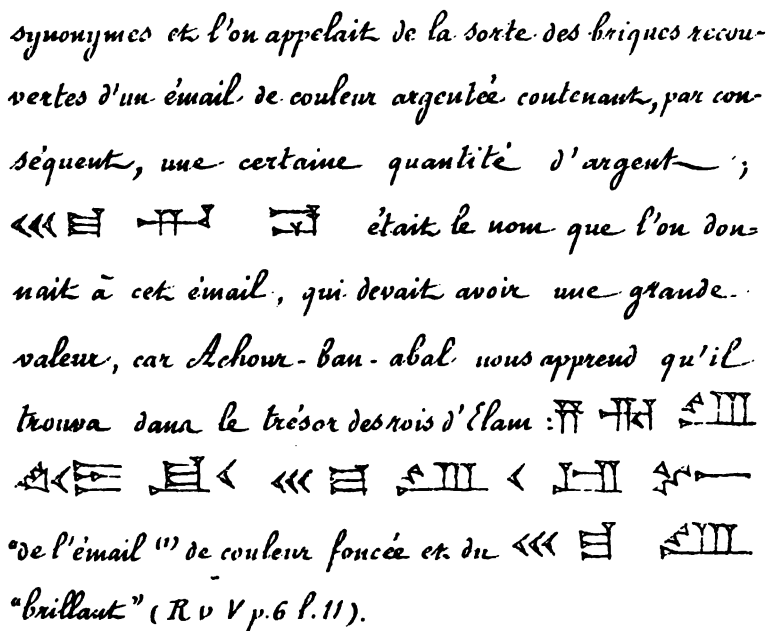 synonymes et l'on appelait de la sorte des briques recou-
vertes d'un émail de couleur argentée contenant, par con-
séquent, une certaine quantité d'argent ;
était le nom que l'on don=
nait à cet émail, qui devait avoir une grande
valeur, car Achour-ban-abal nous apprend qu'il
trouva dans le trésor des rois d'Elam :
"de l'émail (1) de couleur foncée et du
"brillant" (R v V p.6 l.11).